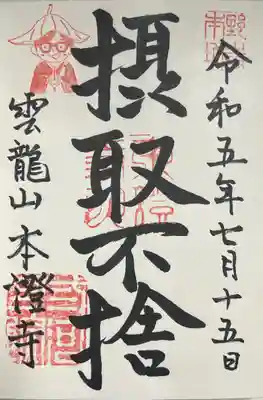 令和五年七月十五日
摂取不捨
雲龍山本澄寺